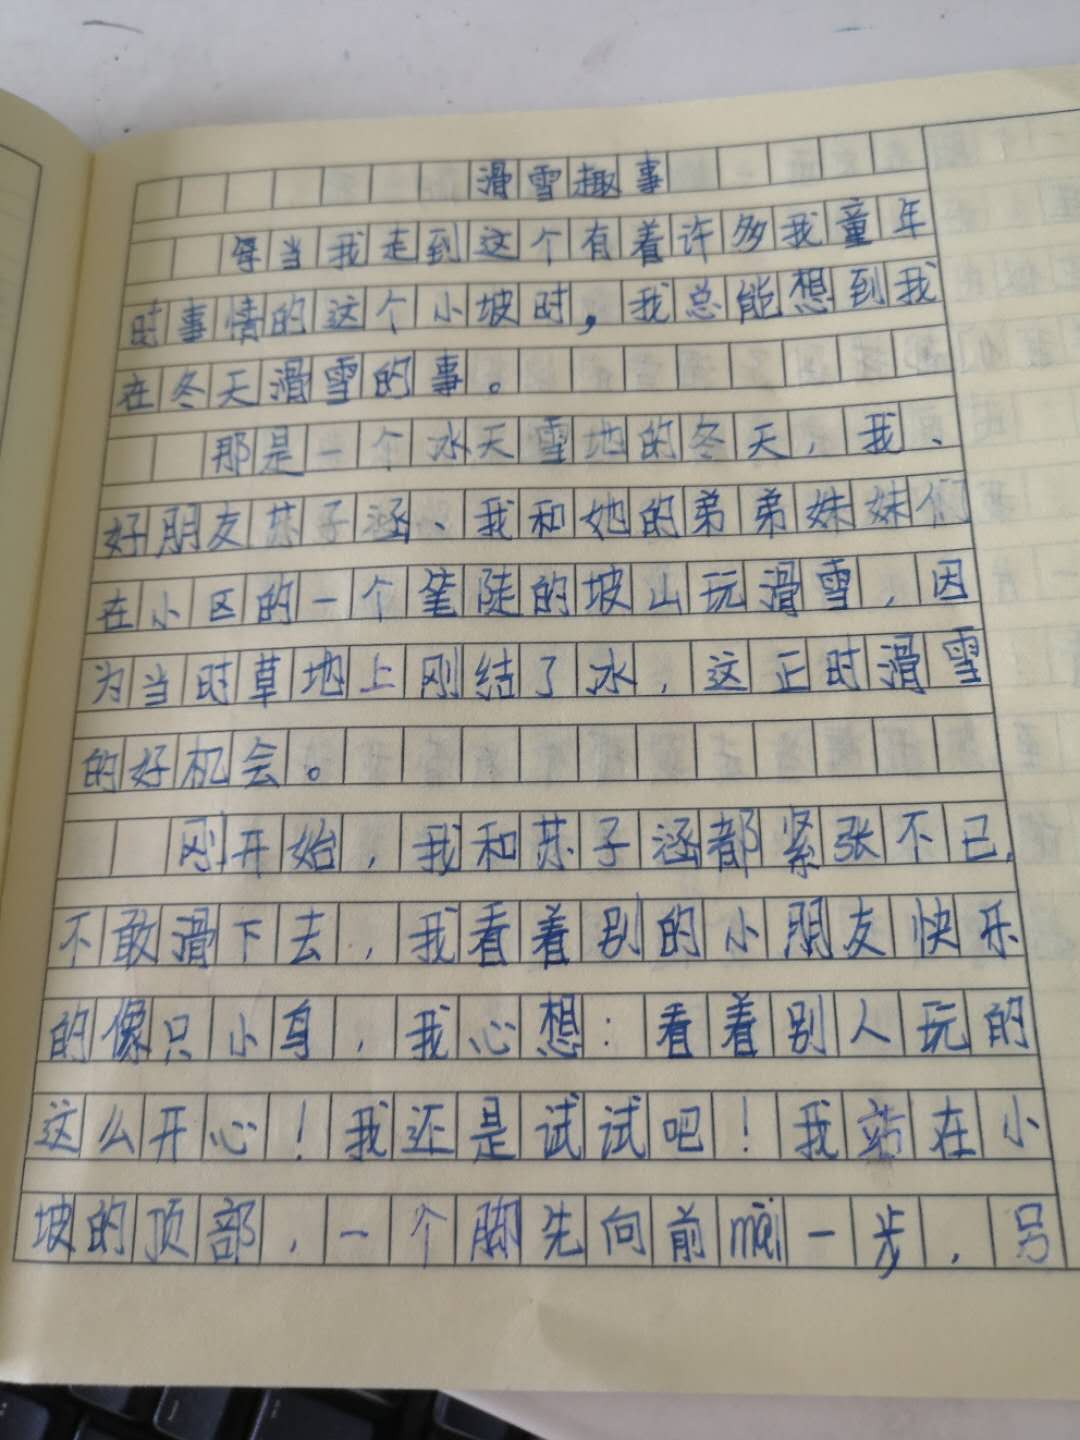 滑雪趣事
每当我走到这个有着许多我童年
时事情的这个小坡时，我总能想到我
在冬天滑雪的事。
那是一个冰天雪地的冬天，我、
好朋友苏子涵、我和她的弟弟妹妹们
在小区的一个笔陡的坡山玩滑雪，因
为当时草地上刚结了冰，这正时滑雪
的好机会。
刚开始，我和苏子涵都紧张不已，
不敢滑下去，我看着别的小朋友快乐
的像只小鸟，我心想：看着别人玩的
这么开心！我还是试试吧！我站在小
坡的顶部，一个脚先向前mài一步，另